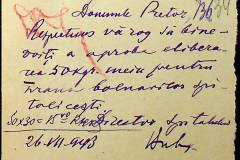 Domnule Pretor,
Respectuos vă rog să bine-
voiți a aproba elibera-
rea 50 kgr. mein pentru
hrana bolnavilor spi-
talicești.
50x30=15 Director Spitalului
26.VII.943